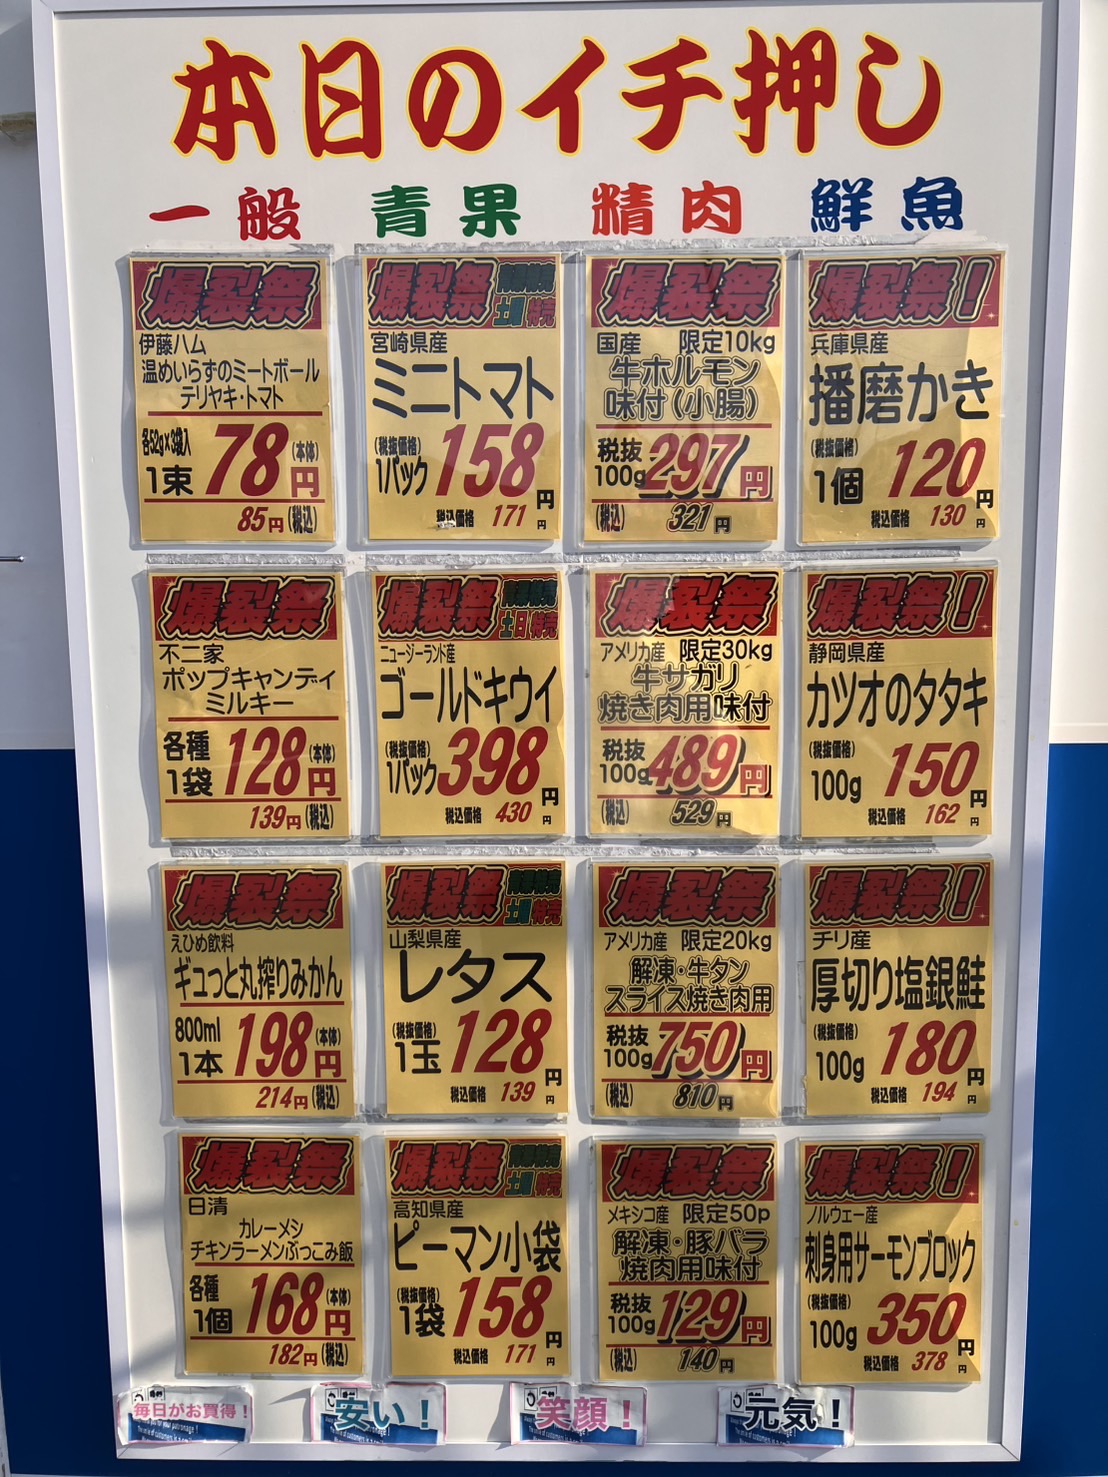 本日のイチ押し
一般 青果 精肉 鮮魚
爆裂祭
伊藤ハム
温めいらずのミートボール
テリヤキ・トマト
各52g×3袋入
1束 78円 (本体)
85円(税込)
爆裂祭 青果特売 土曜特売
宮崎県産
ミニトマト
(税抜価格)
1パック 158円
税込価格 171円
爆裂祭
国産 限定10kg
牛ホルモン
味付(小腸)
税抜
100g 297円
(税込) 321円
爆裂祭!
兵庫県産
播磨かき
(税抜価格)
1個 120円
税込価格 130円
爆裂祭
不二家
ポップキャンディ
ミルキー
各種
1袋 128円 (本体)
139円(税込)
爆裂祭 青果特売 土日特売
ニュージーランド産
ゴールドキウイ
(税抜価格)
1パック 398円
税込価格 430円
爆裂祭
アメリカ産 限定30kg
牛サガリ
焼き肉用味付
税抜
100g 489円
(税込) 529円
爆裂祭!
静岡県産
カツオのタタキ
(税抜価格)
100g 150円
税込価格 162円
爆裂祭
えひめ飲料
ギュっと丸搾りみかん
800ml
1本 198円 (本体)
214円(税込)
爆裂祭 青果特売 土曜特売
山梨県産
レタス
(税抜価格)
1玉 128円
税込価格 139円
爆裂祭
アメリカ産 限定20kg
解凍・牛タン
スライス焼き肉用
税抜
100g 750円
(税込) 810円
爆裂祭!
チリ産
厚切り塩銀鮭
(税抜価格)
100g 180円
税込価格 194円
爆裂祭
日清
カレーメシ
チキンラーメンぶっこみ飯
各種
1個 168円 (本体)
182円(税込)
爆裂祭 青果特売 土曜特売
高知県産
ピーマン小袋
(税抜価格)
1袋 158円
税込価格 171円
爆裂祭
メキシコ産 限定50p
解凍・豚バラ
焼肉用味付
税抜
100g 129円
(税込) 140円
爆裂祭!
ノルウェー産
刺身用サーモンブロック
(税抜価格)
100g 350円
税込価格 378円
毎日がお買得! 安い! 笑顔! 元気!